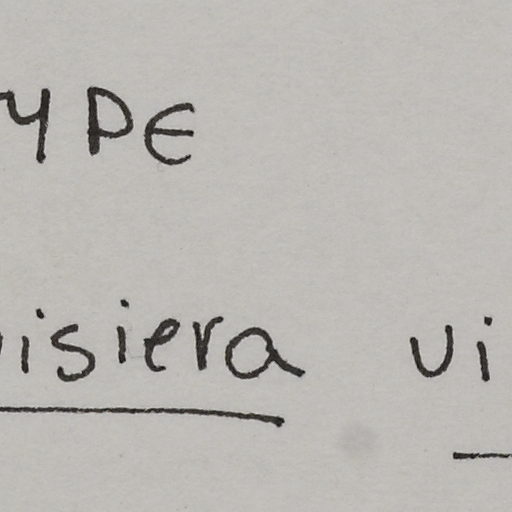 YPE
uisiera vi